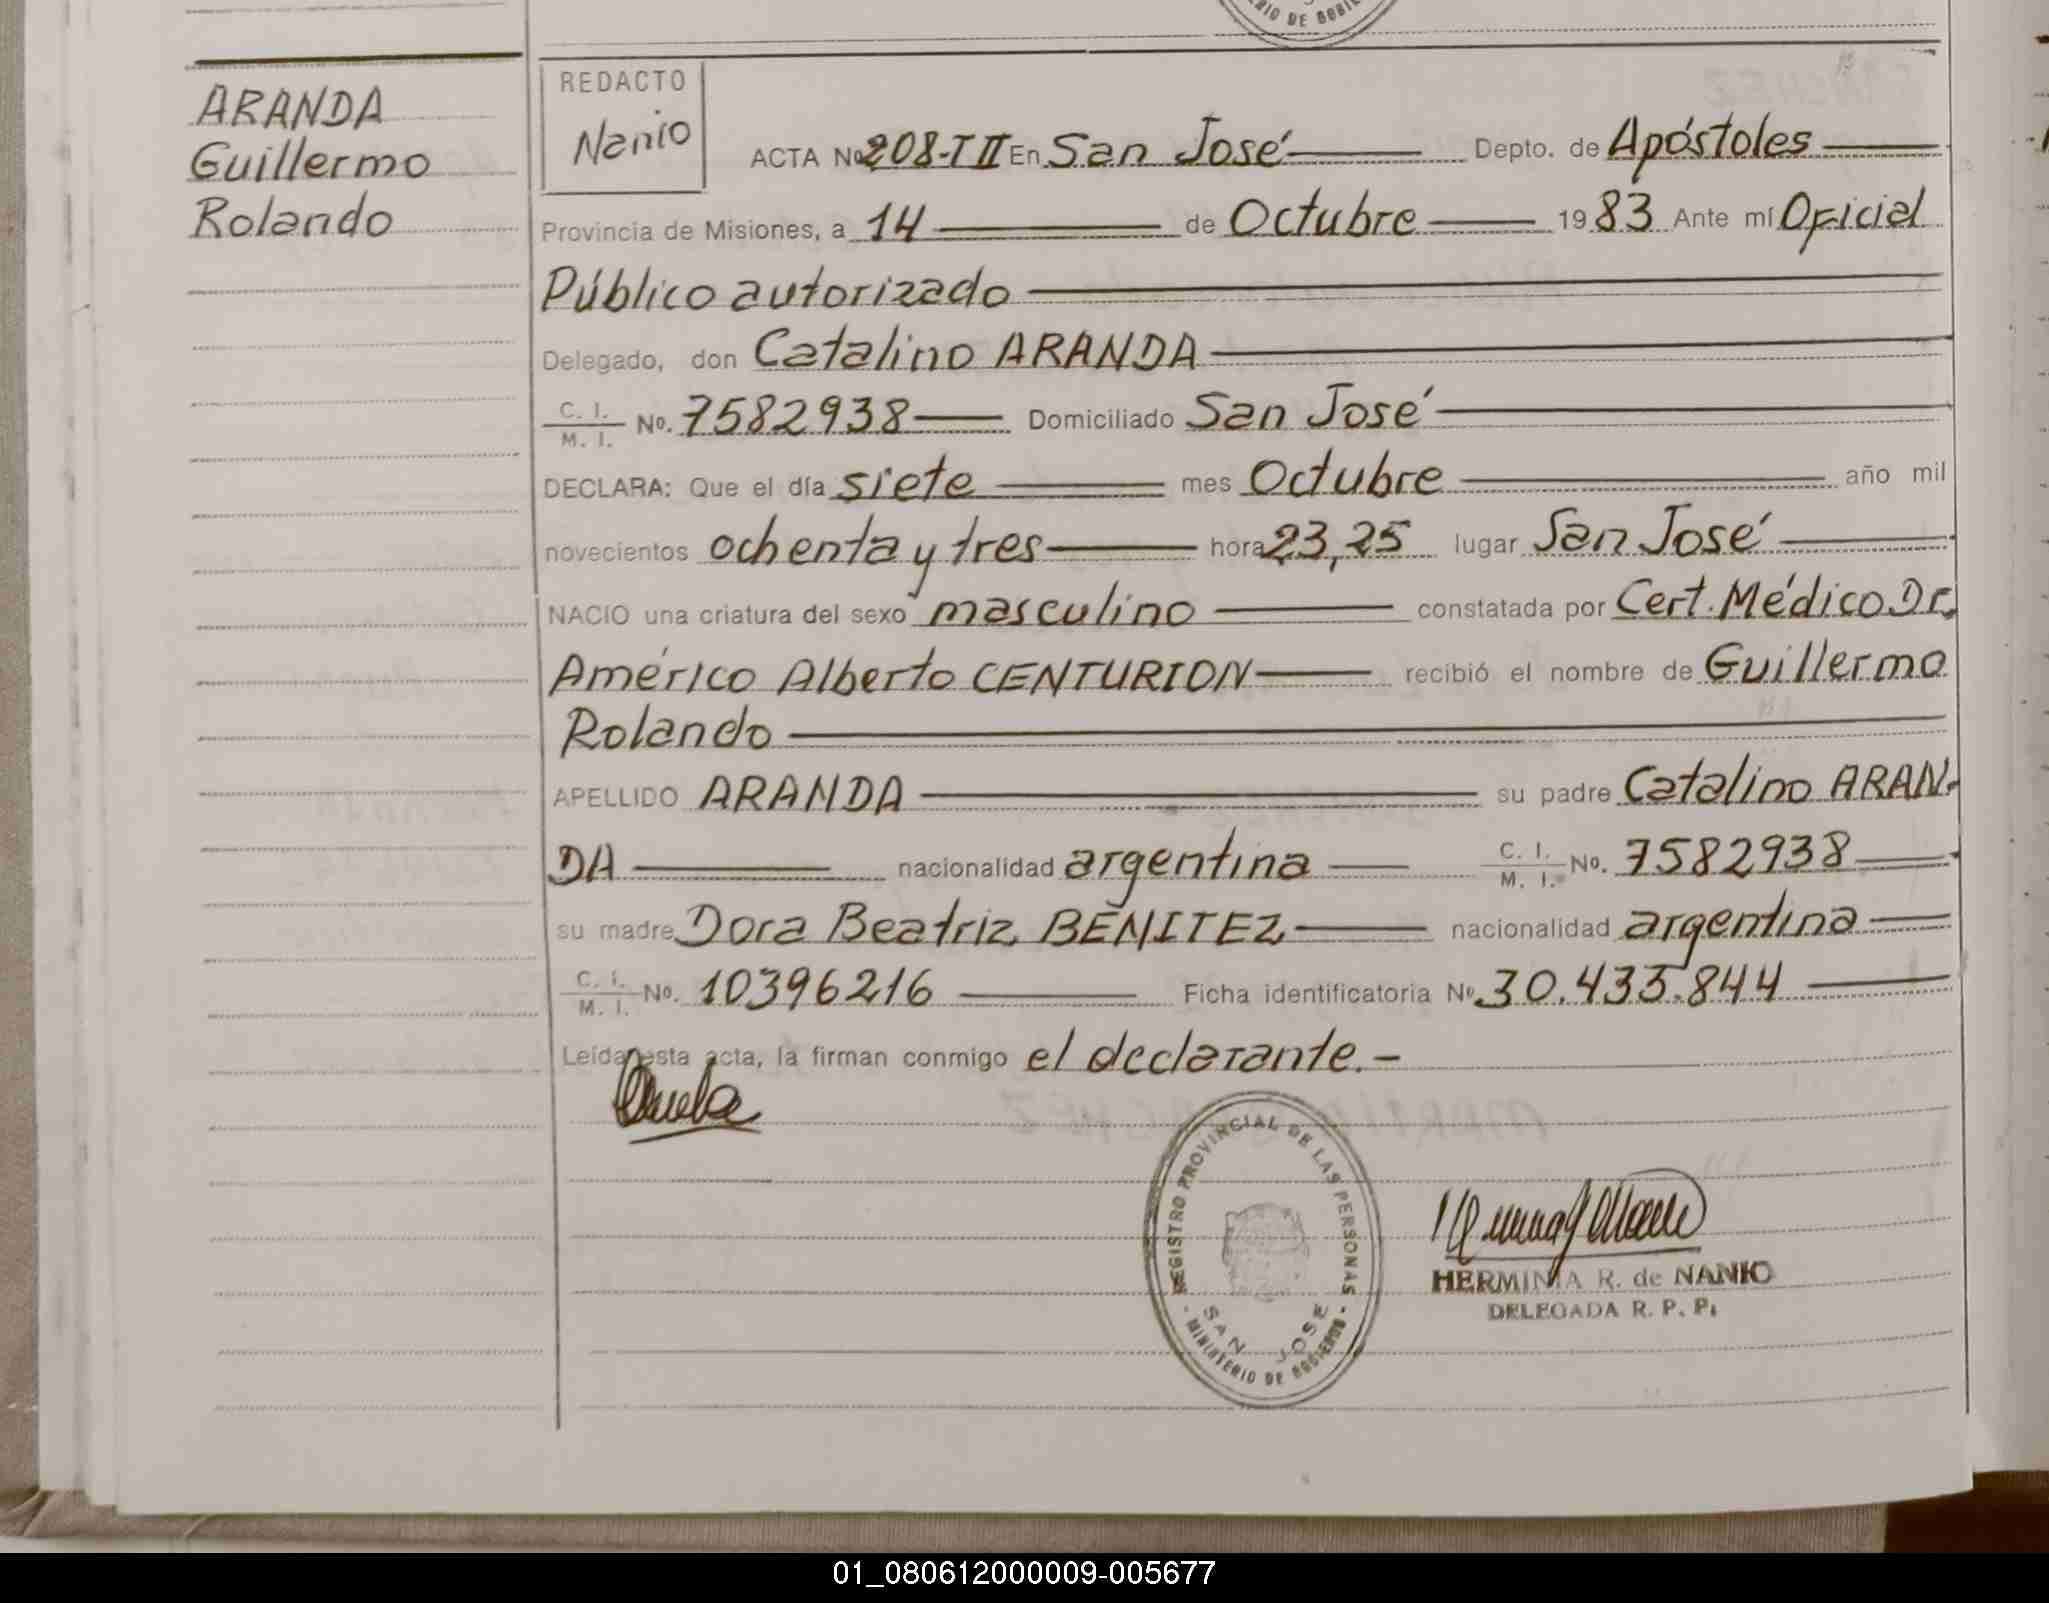 ARANDA
Guillermo
Rolando
RIO DE GOBIE
REDACTO
Nanio
ACTA Nº 208-T II En San José Depto. de Apóstoles
Provincia de Misiones, a 14 de Octubre 1983 Ante mí Oficial
Público autorizado
Delegado, don Catalino ARANDA
C. I. / M. I. No. 7582938 Domiciliado San José
DECLARA: Que el día siete mes Octubre año mil
novecientos ochenta y tres hora 23,25 lugar San José
NACIO una criatura del sexo masculino constatada por Cert. Médico Dr.
Américo Alberto CENTURION recibió el nombre de Guillermo
Rolando
APELLIDO ARANDA su padre Catalino ARAN-
DA nacionalidad argentina C. I. / M. I. No. 7582938
su madre Dora Beatriz BENITEZ nacionalidad argentina
C. I. / M. I. No. 10396216 Ficha identificatoria Nº 30.433.844
Leída esta acta, la firman conmigo el declarante.-
REGISTRO PROVINCIAL DE LAS PERSONAS
SAN JOSE
- MINISTERIO DE GOBIERNO -
HERMINIA R. de NANIO
DELEGADA R. P. P.
01_080612000009-005677